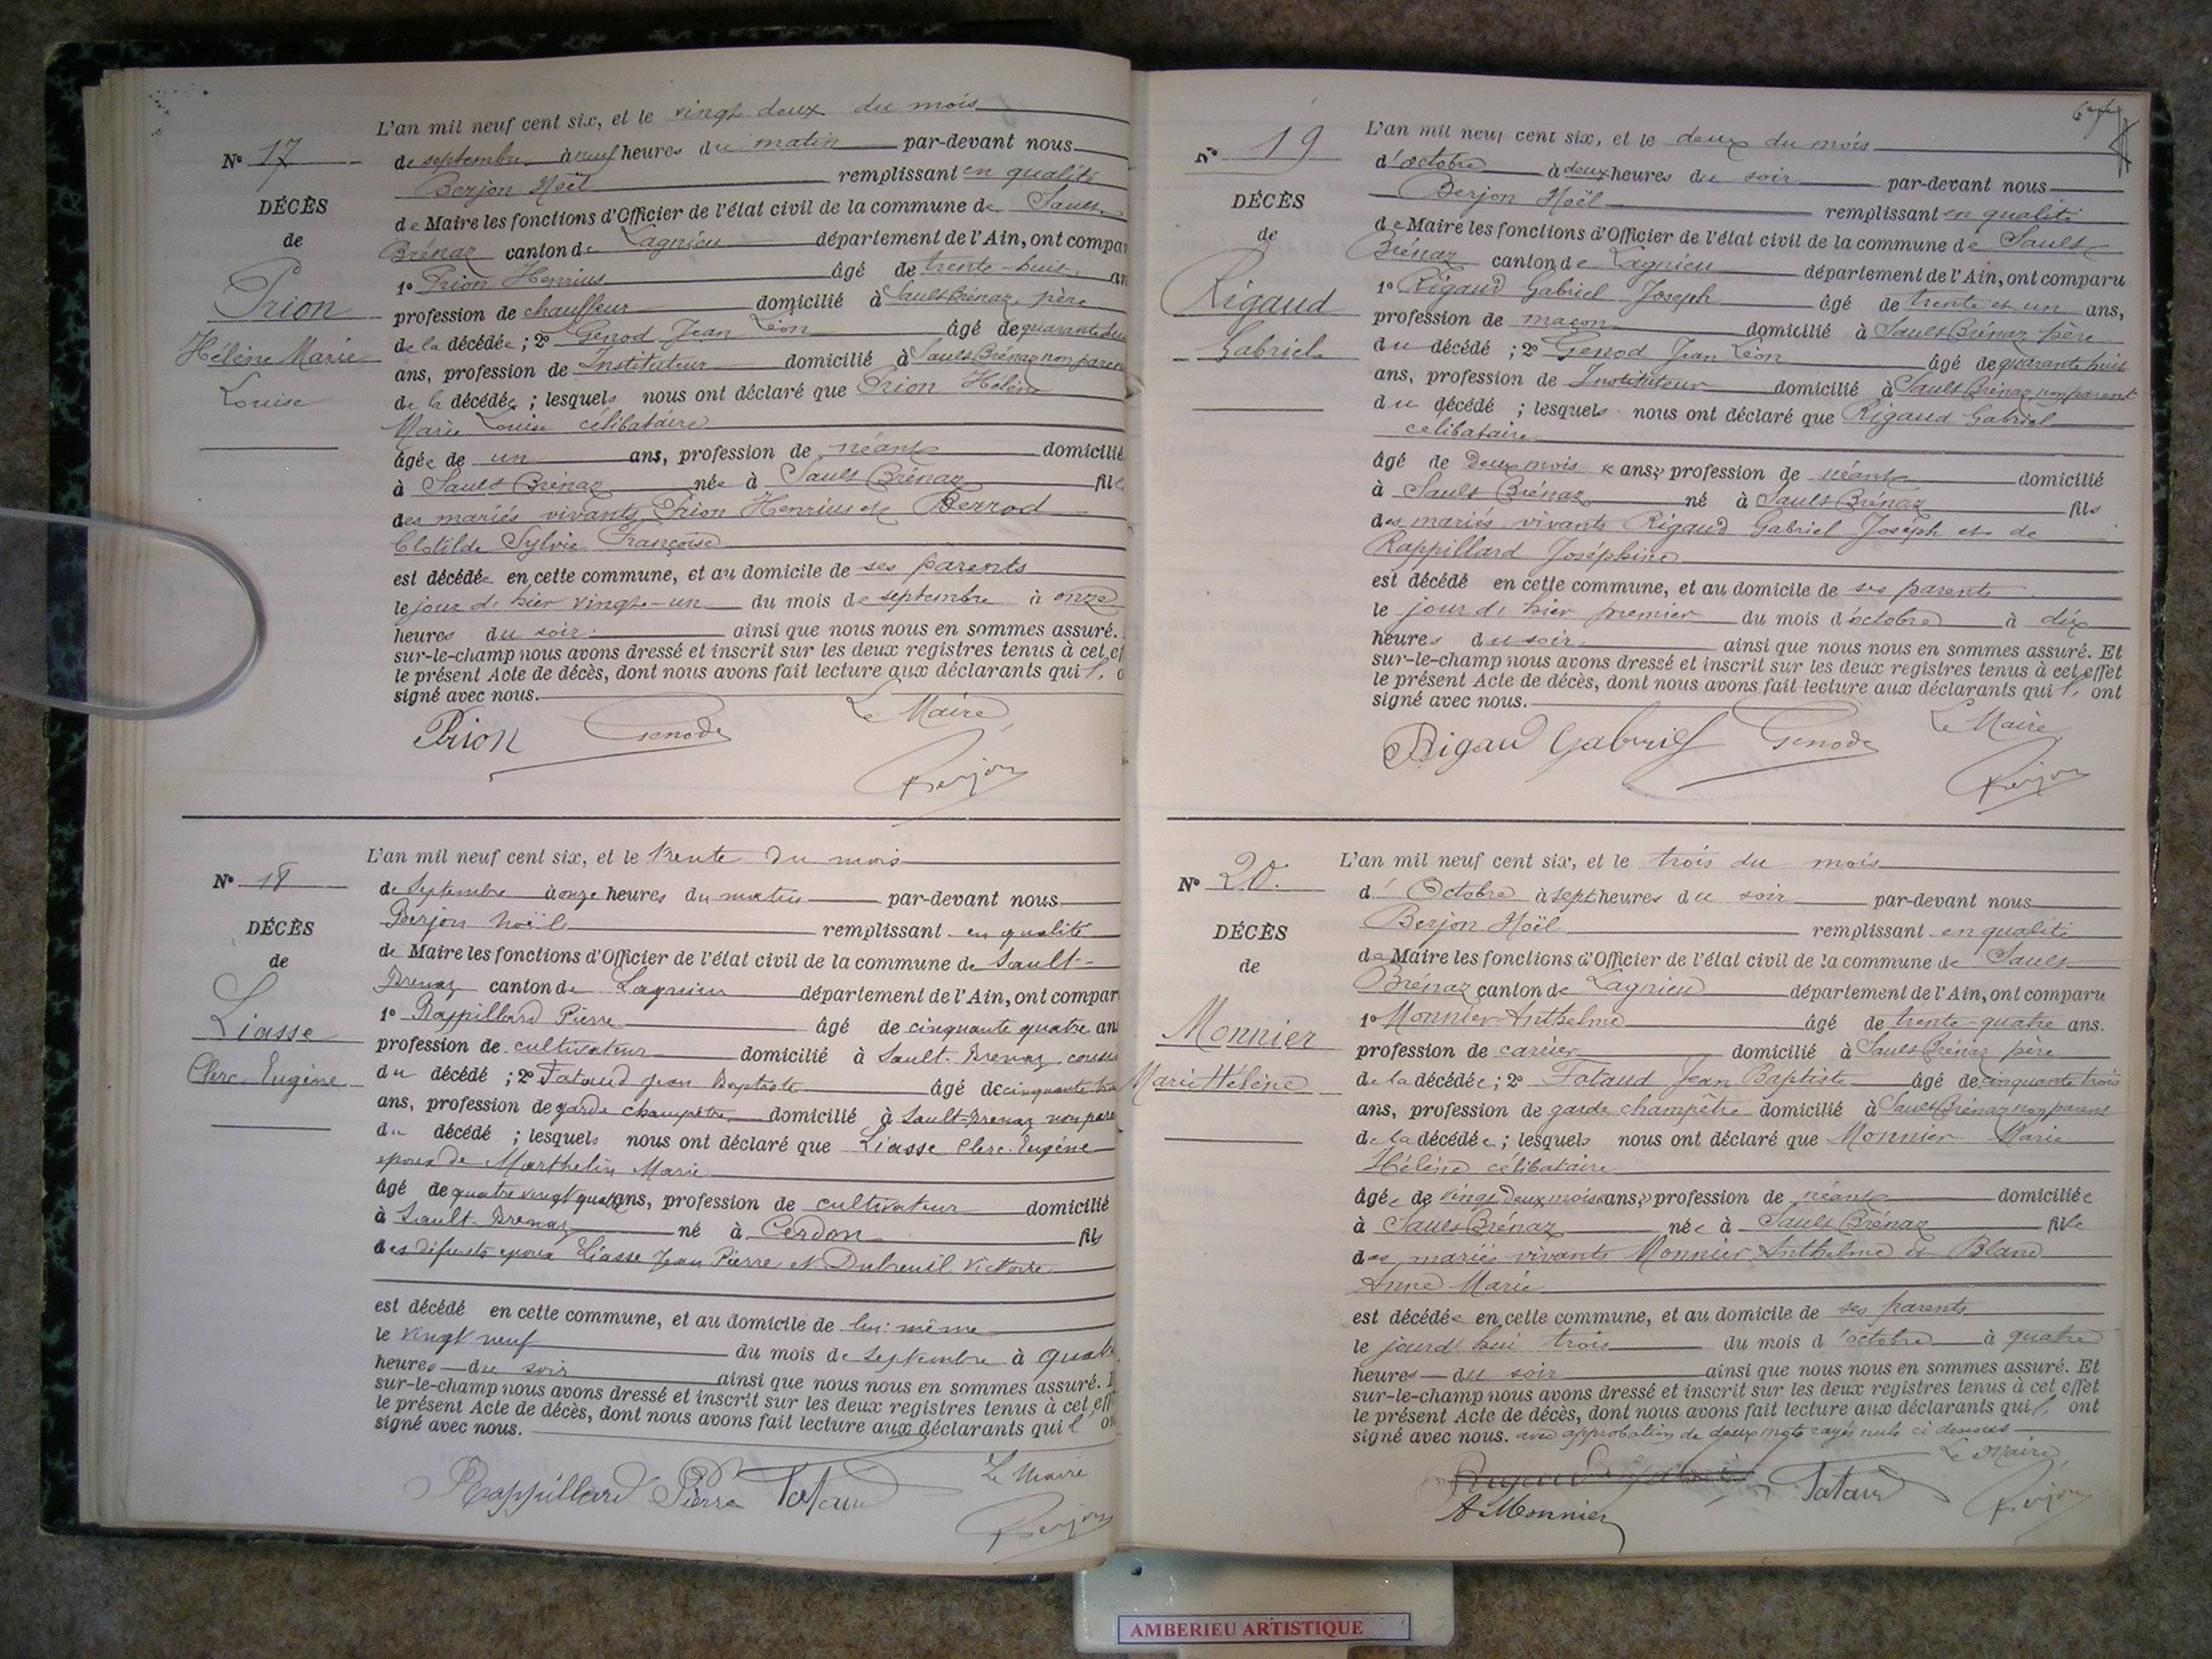 L'an mil neuf cent six, et le vingt deux du mois
N° 17
de septembre à neuf heures du matin par-devant nous
Berjon Noël remplissant en qualité
DÉCÈS
de Maire les fonctions d'Officier de l'état civil de la commune de Sault
de
Brénaz canton de Lagnieu département de l'Ain, ont compar
1° Prion Henrius âgé de trente-huit an
Prion
profession de chauffeur domicilié à Sault Brénaz, père
de la décédée ; 2° Genod Jean Léon âgé de quarante
Hélène Marie
ans, profession de Instituteur domicilié à Sault Brénaz non paren
Louise
de la décédée ; lesquels nous ont déclaré que Prion Hélène
Marie Louise célibataire
âgée de un ans, profession de néant domicilié
à Sault Brénaz née à Sault Brénaz fille
des mariés vivants Prion Henrius et Berrod
Clotilde Sylvie Françoise
est décédée en cette commune, et au domicile de ses parents
le jour d'hier vingt-un du mois de septembre à onze
heures du soir ainsi que nous nous en sommes assuré.
sur-le-champ nous avons dressé et inscrit sur les deux registres tenus à cet ef
le présent Acte de décès, dont nous avons fait lecture aux déclarants qui l' o
signé avec nous.
Le Maire
Prion Genod
Berjon
L'an mil neuf cent six, et le trente du mois
N° 18
de Septembre à onze heures du matin par-devant nous
Berjon Noël remplissant en qualité
DÉCÈS
de Maire les fonctions d'Officier de l'état civil de la commune de Sault-
de
Brenaz canton de Lagnieu département de l'Ain, ont compar
1° Rappillard Pierre âgé de cinquante quatre an
Liasse
profession de cultivateur domicilié à Sault-Brenaz,
Clerc-Eugène
du décédé ; 2° Tataud Jean Baptiste âgé de cinquante
ans, profession de garde champêtre domicilié à Sault-Brenaz non pare
du décédé ; lesquels nous ont déclaré que Liasse Clerc-Eugène
époux de Marthelin Marie
âgé de quatre vingt quatre ans, profession de cultivateur domicilié
à Sault-Brenaz né à Cerdon fils
des défunts époux Liasse Jean Pierre et Dubreuil Victoire
est décédé en cette commune, et au domicile de lui-même
le vingt neuf du mois de Septembre à quatr
heures du soir ainsi que nous nous en sommes assuré.
sur-le-champ nous avons dressé et inscrit sur les deux registres tenus à cet eff
le présent Acte de décès, dont nous avons fait lecture aux déclarants qui l' on
signé avec nous.
Le Maire
Rappillard Pierre Tataud
Berjon
L'an mil neuf cent six, et le deux du mois
N° 19
d'octobre à deux heures du soir par-devant nous
Berjon Noël remplissant en qualité
DÉCÈS
de Maire les fonctions d'Officier de l'état civil de la commune de Sault
de
Brénaz canton de Lagnieu département de l'Ain, ont comparu
1° Rigaud Gabriel Joseph âgé de trente et un ans,
Rigaud
profession de maçon domicilié à Sault Brénaz père
Gabriel
du décédé ; 2° Genod Jean Léon âgé de quarante huit
ans, profession de Instituteur domicilié à Sault Brénaz non parent
du décédé ; lesquels nous ont déclaré que Rigaud Gabriel
célibataire
âgé de Deux mois « ans » profession de néant domicilié
à Sault Brénaz né à Sault Brénaz fils
des mariés vivants Rigaud Gabriel Joseph et de
Rappillard Joséphine
est décédé en cette commune, et au domicile de ses parents
le jour d'hier premier du mois d'octobre à dix
heures du soir ainsi que nous nous en sommes assuré. Et
sur-le-champ nous avons dressé et inscrit sur les deux registres tenus à cet effet
le présent Acte de décès, dont nous avons fait lecture aux déclarants qui l' ont
signé avec nous.
Le Maire
Rigaud Gabriel Genod
Berjon
L'an mil neuf cent six, et le trois du mois
N° 20.
d'Octobre à sept heures du soir par-devant nous
Berjon Noël remplissant en qualité
DÉCÈS
de Maire les fonctions d'Officier de l'état civil de la commune de Sault
de
Brénaz canton de Lagnieu département de l'Ain, ont comparu
1° Monnier Anthelme âgé de trente-quatre ans.
Monnier
profession de carrier domicilié à Sault Brénaz père
Marie Hélène
de la décédée ; 2° Tataud Jean Baptiste âgé de cinquante trois
ans, profession de garde champêtre domicilié à Sault Brénaz non parent
de la décédée ; lesquels nous ont déclaré que Monnier Marie
Hélène célibataire
âgée de vingt deux mois « ans » profession de néant domiciliée
à Sault Brénaz née à Sault Brénaz fille
des mariés vivants Monnier Anthelme et Bland
Anne Marie
est décédée en cette commune, et au domicile de ses parents
le jourd'hui trois du mois d'octobre à quatre
heures du soir ainsi que nous nous en sommes assuré. Et
sur-le-champ nous avons dressé et inscrit sur les deux registres tenus à cet effet
le présent Acte de décès, dont nous avons fait lecture aux déclarants qui l' ont
signé avec nous. avec approbation de deux mots rayés nuls ci dessous
Le Maire
Tataud
A Monnier
Berjon
AMBERIEU ARTISTIQUE